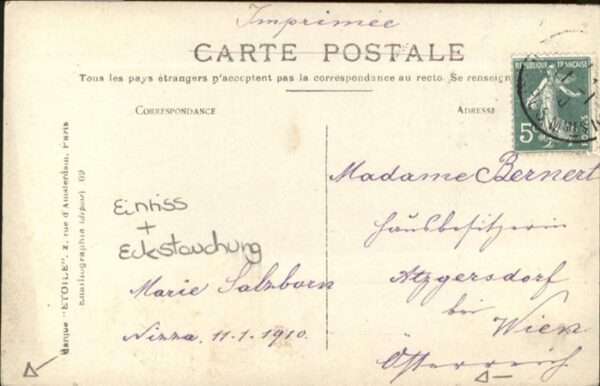 Imprimée
CARTE POSTALE
Tous les pays étrangers n'acceptent pas la correspondance au recto. Se renseign
CORRESPONDANCE
ADRESSE
REPUBLIQUE FRANÇAISE
5c
Madame Bernert
Hausbesitzerin
Atzgersdorf
bei Wien
Österreich
Einriss
+
Eckstauchung
Marie Salzborn
Nizza, 11.1.1910.
Marque "ETOILE", 2, rue d'Amsterdam, Paris